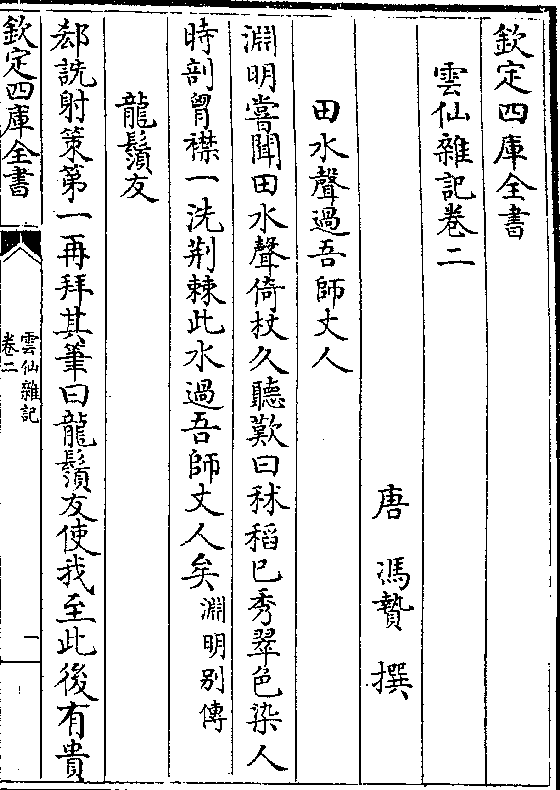 欽定四庫全書
雲仙雜記卷二
唐 馮贄 撰
田水聲過吾師丈人
淵明嘗聞田水聲倚杖久聽歎曰秫稻已秀翠色染人
時剖胷襟一洗荆棘此水過吾師丈人矣淵明别傳
龍鬚友
郄詵射策第一再拜其筆曰龍鬚友使我至此後有貴
欽定四庫全書
雲仙雜記
卷二
一